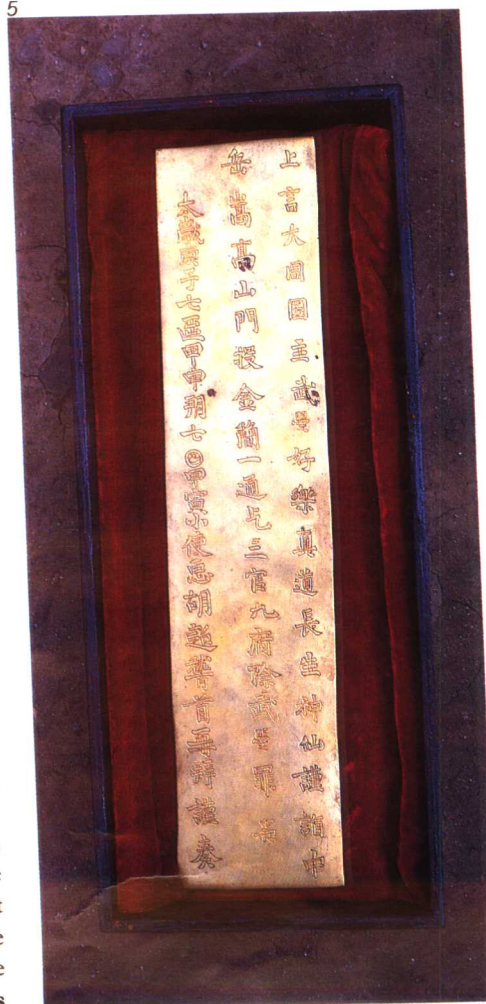 5
上言大周圀主武曌好樂真道長生神仙謹詣中
岳嵩高山門投金簡一通乞三官九府除武曌罪名
太歲庚子七𠥱甲申朔七𡆠甲寅小使𢘑胡超稽首再拜謹奏